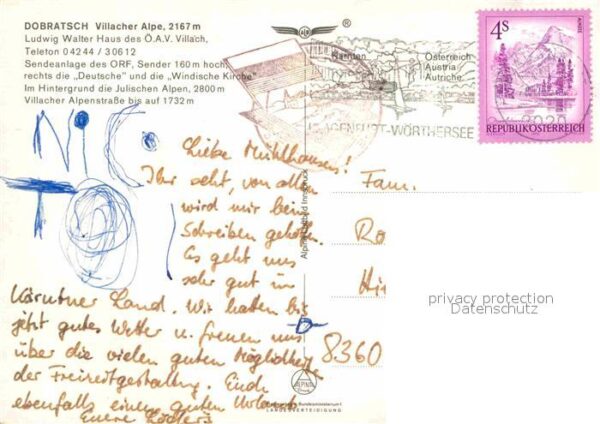 DOBRATSCH Villacher Alpe, 2167 m
Ludwig Walter Haus des Ö.A.V. Villach,
Telefon 04244 / 30612
Sendeanlage des ORF, Sender 160 m hoch,
rechts die „Deutsche" und die „Windische Kirche"
Im Hintergrund die Julischen Alpen, 2800 m
Villacher Alpenstraße bis auf 1732 m
®
Kärnten
Österreich
Austria
Autriche
KLAGENFURT-WÖRTHERSEE
4S
ALMSEE
REPUBLIK ÖSTERREICH
9020
NIC
Liebe Mühlhauser!
Ihr seht, von allen
wird mir beim
Schreiben geholfen.
Es geht uns
sehr gut im
Kärntner Land. Wir hatten bis
jetzt gutes Wetter u. freuen uns
über die vielen guten Möglichkeiten
der Freizeitgestaltung. Euch
ebenfalls einen guten Urlaub
Eure
Fam.
Ro
Hi
8360
privacy protection
Datenschutz
ALPINE
LANDESVERTEIDIGUNG